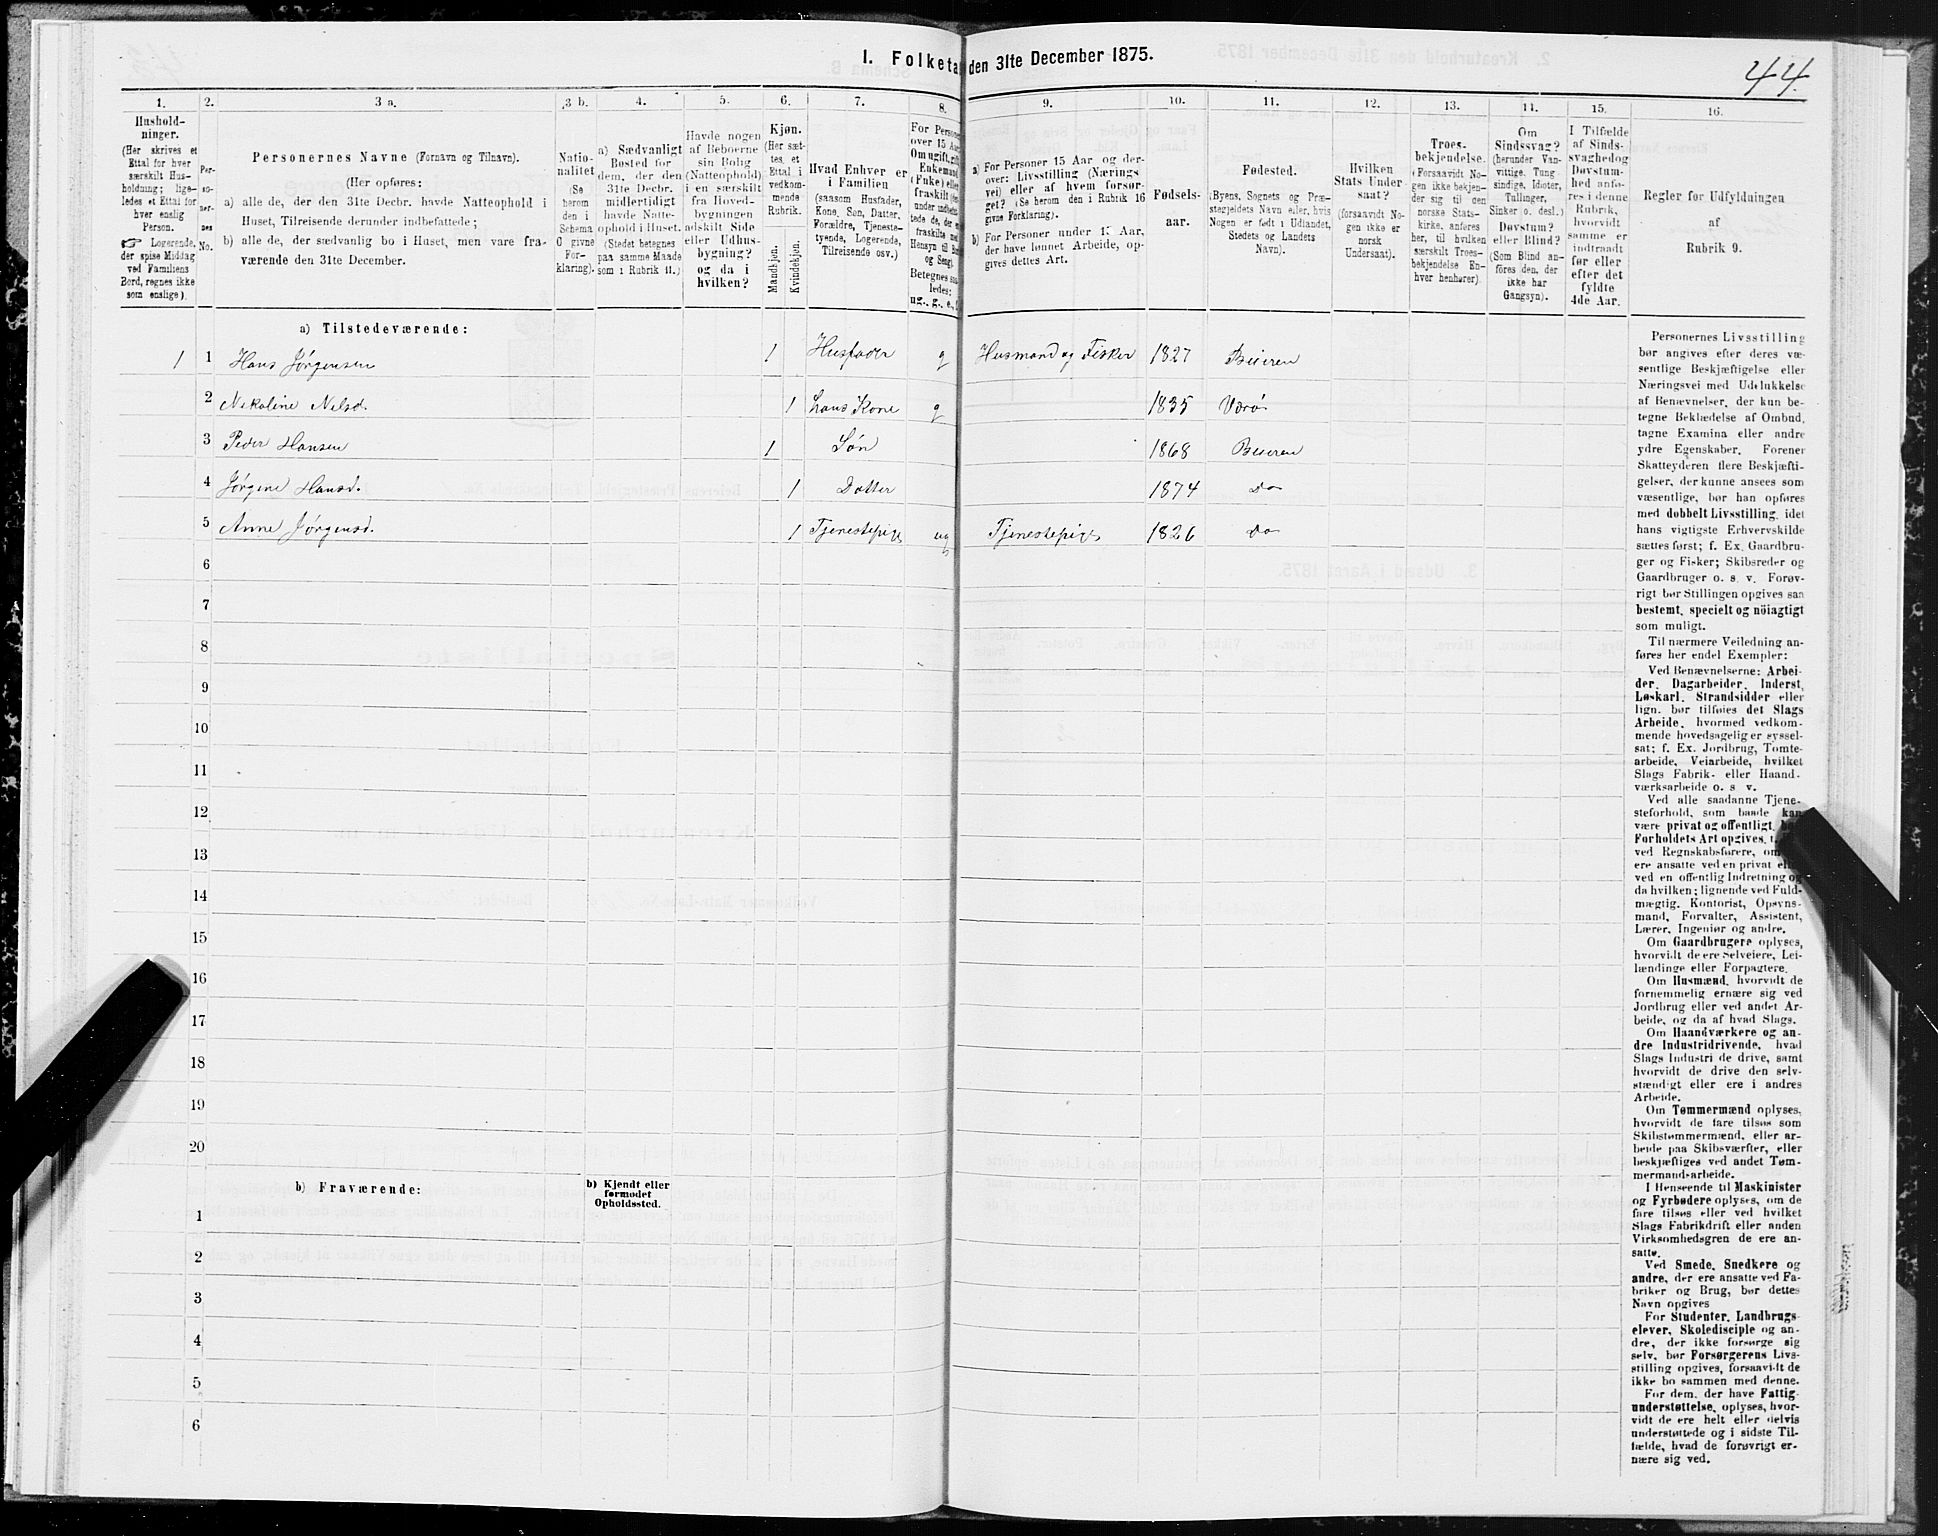 I. Folketa den 31te December 1875.
44.
1. 2. 3 a. 3 b. 4. 5. 6. 7. 8. 9. 10. 11. 12. 13. 14. 15. 16.
Hushold-
ninger.
(Her skrives et
Ettal for hver
særskilt Hus-
holdning; lige-
ledes et Ettal for
hver enslig
Person.
☞ Logerende,
der spise Middag
ved Familiens
Bord, regnes ikke
som enslige).
Per-
so-
ner-
nes
No.
Personernes Navne (Fornavn og Tilnavn).
(Her opføres:
a) alle de, der den 31te Decbr. havde Natteophold i
Huset, Tilreisende derunder indbefattede;
b) alle de, der sædvanlig bo i Huset, men vare fra-
værende den 31te December.
Natio-
nalitet
(Se
herom
den i
Schema
O givne
For-
klaring).
a) Sædvanligt
Bosted for
dem, der den
31te Decbr.
midlertidigt
havde Natte-
ophold i Huset.
(Stedet betegnes
paa samme Maade
som i Rubrik 11.)
Havde nogen
af Beboerne
sin Bolig
(Natteophold)
i en særskilt
fra Hoved-
bygningen
adskilt Side
eller Udhus-
bygning?
og da i
hvilken?
Kjøn.
(Her sæt-
tes, et
Ettal i
vedkom-
mende
Rubrik.
Mandkjøn.
Kvindekjøn.
Hvad Enhver er
i Familien
(saasom Husfader,
Kone, Søn, Datter,
Forældre, Tjeneste-
tyende, Logerende,
Tilreisende osv.)
For Persone
over 15 Aar
Om ugift, gift,
Enkemand
(Enke) elle
fraskilt
under indbefat-
tede de, der e
fraskilte med
Hensyn til B
og Seng).
Betegnes saa-
ledes;
ug., g., e.,
a) For Personer 15 Aar og der-
over: Livsstilling (Nærings
vei) eller af hvem forsør-
get? (Se herom den i Rubrik 16
givne Forklaring).
b) For Personer under 15 Aar,
der have lønnet Arbeide, op-
gives dettes Art.
Fødsels-
aar.
Fødested.
(Byens, Sognets og Præ-
stegjeldets Navn eller, hvis
Nogen er født i Udlandet,
Stedets og Landets
Navn).
Hvilken
Stats Under
saat?
(forsaavidt No-
gen ikke er
norsk
Undersaat).
Troes-
bekjendelse.
(Forsaavidt No-
gen ikke bekjen-
der sig til den
norske Stats-
kirke, anføres
her, til hvilken
særskilt Troes-
bekjendelse En-
hver henhører).
Om
Sindssvag?
(herunder Van-
vittige, Tung-
sindige, Idioter,
Tullinger,
Sinker o. desl.)
Døvstum?
eller Blind?
(Som Blind an-
føres den, der
ikke har
Gangsyn).
I Tilfælde
af Sinds-
svaghed og
Døvstum-
hed anfø-
res i denne
Rubrik,
hvorvidt
samme er
indtraadt
før eller
efter det
fyldte
4de Aar.
Regler for Udfyldningen
af
Rubrik 9.
a) Tilstedeværende:
1 1 Hans Jørgensen 1 Husfader g Husmand og Fisker 1827 Beieren
2 Nikoline Nelsd. 1 hans Kone g 1835 Værø
3 Peder Hansen 1 Søn 1868 Beieren
4 Jørgene Hansd. 1 Datter 1874 Do
5 Anne Jørgensd. 1 Tjenestepige ug Tjenestepige 1826 Do
6
7
8
9
10
11
12
13
14
15
16
17
18
19
20
b) Fraværende:
b) Kjendt eller
formodet
Opholdssted.
1
2
3
4
5
6
Personernes Livsstilling
bør angives efter deres væ-
sentlige Beskjæftigelse eller
Næringsvei med Udelukkelse
af Benævnelser, der kun be-
tegne Beklædelse af Ombud,
tagne Examina eller andre
ydre Egenskaber. Forener
Skatteyderen flere Beskjæfti-
gelser, der kunne ansees som
væsentlige, bør han opføres
med dobbelt Livsstilling, idet
hans vigtigste Erhvervskilde
sættes først; f. Ex. Gaardbru-
ger og Fisker; Skibsreder og
Gaardbruger o. s. v. Forøv-
rigt bør Stillingen opgives saa
bestemt, specielt og nöiagtigt
som muligt.
Til nærmere Veiledning an-
føres her endel Exempler:
Ved Benævnelserne: Arbei-
der, Dagarbeider, Inderst,
Løskarl, Strandsidder eller
lign. bør tilføies det Slags
Arbeide, hvormed vedkom-
mende hovedsagelig er syssel-
sat; f. Ex. Jordbrug, Tomte-
arbeide, Veiarbeide, hvilket
Slags Fabrik- eller Haand-
værksarbeide o. s. v.
Ved alle saadanne Tjene-
steforhold, som baade kan
være privat og offentligt,
Forholdets Art opgives,
ved Regnskabsførere, om
ere ansatte ved en privat
ved en offentlig Indretning og
da hvilken; lignende ved Fuld-
mægtig, Kontorist, Opsyns-
mand, Forvalter, Assistent,
Lærer, Ingeniør og andre.
Om Gaardbrugere oplyses,
hvorvidt de ere Selveiere, Lei-
lændinge eller Forpagtere.
Om Husmænd, hvorvidt de
fornemmelig ernære sig ved
Jordbrug eller ved andet Ar-
beide, og da af hvad Slags.
Om Haandværkere og an-
dre Industridrivende, hvad
Slags Industri de drive, samt
hvorvidt de drive den selv-
stændigt eller ere i andres
Arbeide.
Om Tømmermænd oplyses,
hvorvidt de fare tilsøs som
Skibstømmermænd, eller ar-
beide paa Skibsværfter, eller
beskjæftiges ved andet Tøm-
mermandsarbeide.
I Henseende til Maskinister
og Fyrbødere oplyses, om de
fare tilsøs eller ved hvilket
Slags Fabrikdrift eller anden
Virksomhedsgren de ere an-
satte.
Ved Smede, Snedkere og
andre, der ere ansatte ved Fa-
briker og Brug, bør dettes
Navn opgives
For Studenter, Landbrugs-
elever, Skoledisciple og an-
dre, der ikke forsørge sig
selv, bør Forsørgerens Livs-
stilling opgives, forsaavidt de
ikke bo sammen med denne.
For dem, der have Fattig-
understøttelse, oplyses, hvor-
vidt de ere helt eller delvis
understøttede og i sidste Til-
fælde, hvad de forøvrigt er-
nære sig ved.